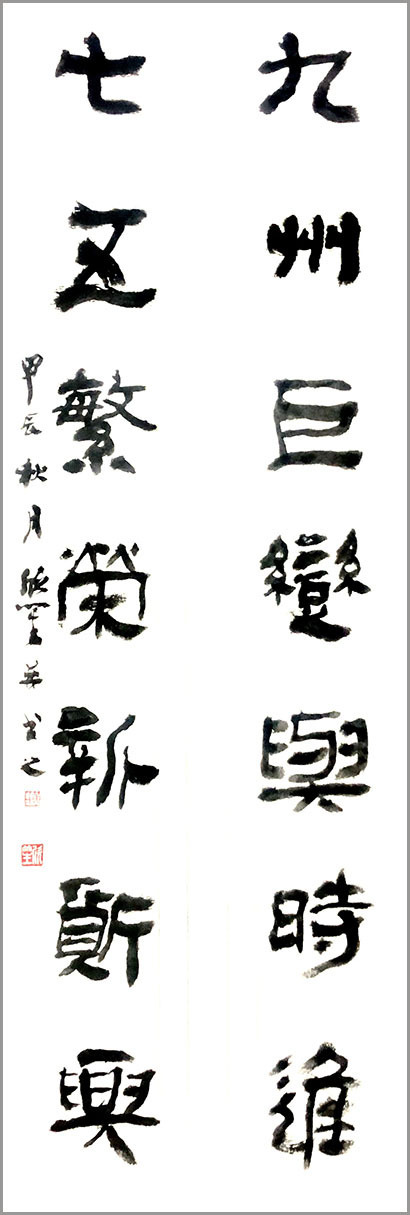 九州巨變與時進
七五繁榮新質興
甲辰秋月並書之